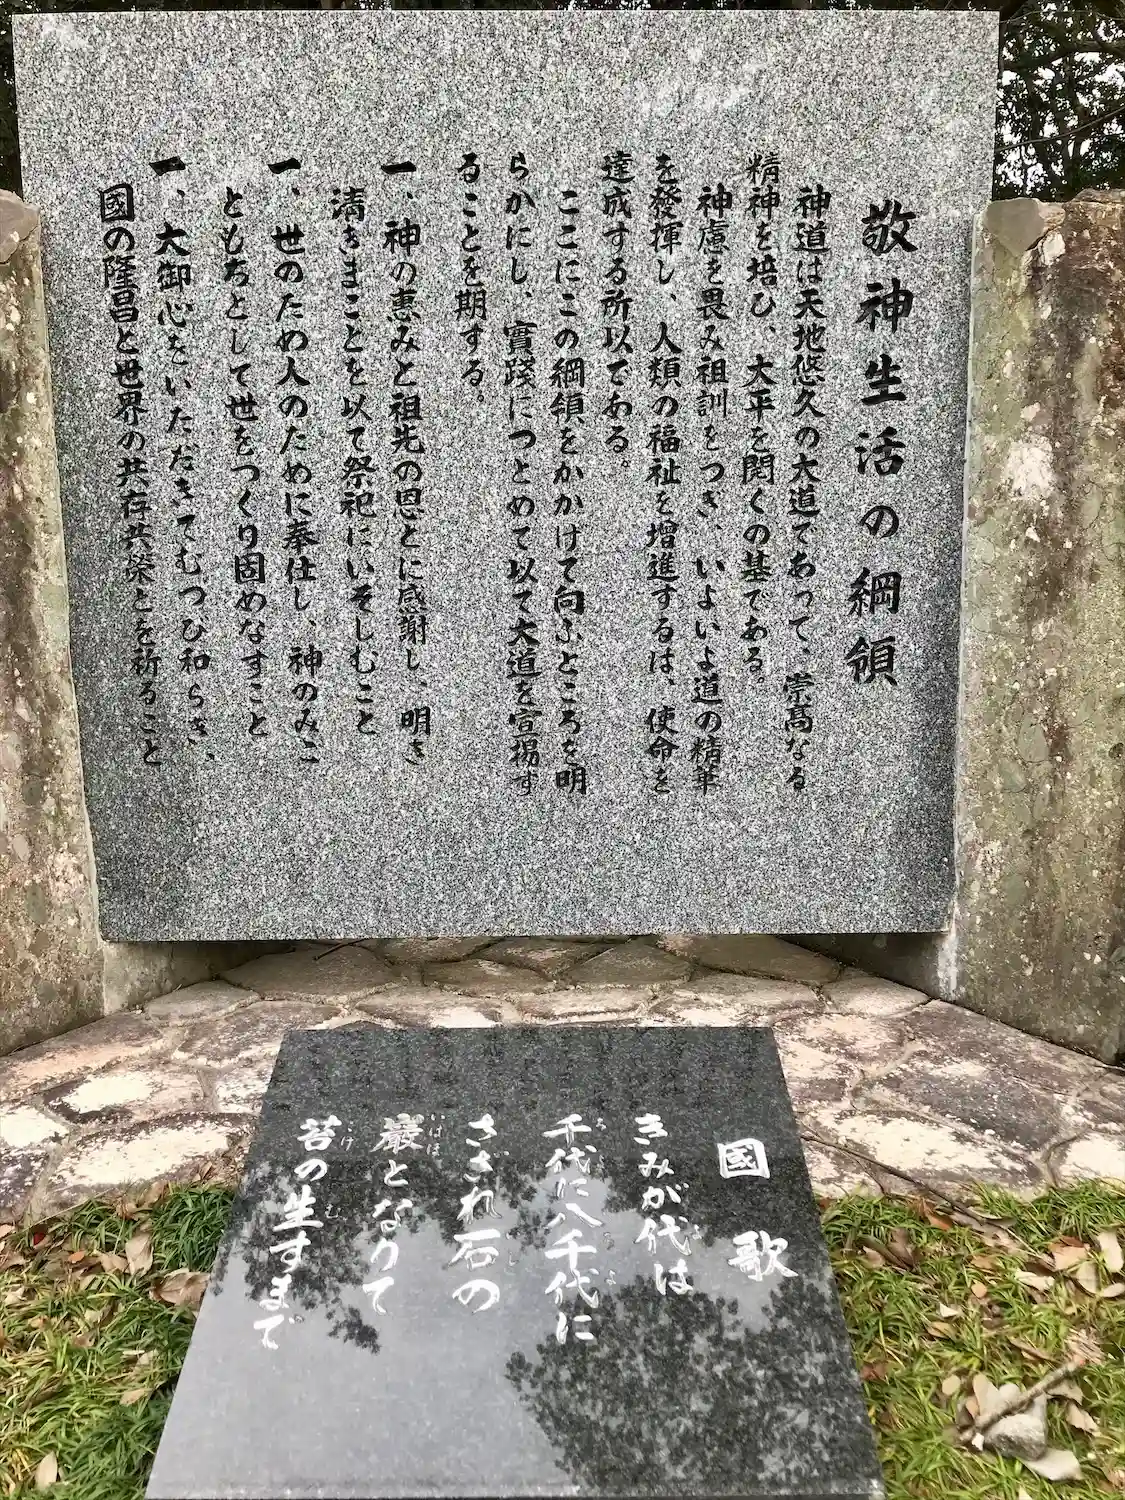 敬神生活の綱領
神道は天地悠久の大道であって、崇高なる
精神を培ひ、太平を開くの基である。
神慮を畏み祖訓をつぎ、いよいよ道の精華
を發揮し、人類の福祉を増進するは、使命を
達成する所以である。
ここにこの綱領をかかげて向ふところを明
らかにし、實踐につとめて以て大道を宣揚す
ることを期する。
一、神の恵みと祖先の恩とに感謝し、明き
清きまことを以て祭祀にいそしむこと
一、世のため人のために奉仕し、神のみこ
ともちとして世をつくり固めなすこと
一、大御心をいただきてむつび和らぎ、
國の隆昌と世界の共存共榮とを祈ること
國歌
きみが代は
千代に八千代に
さざれ石の
巌となりて
苔の生すまで